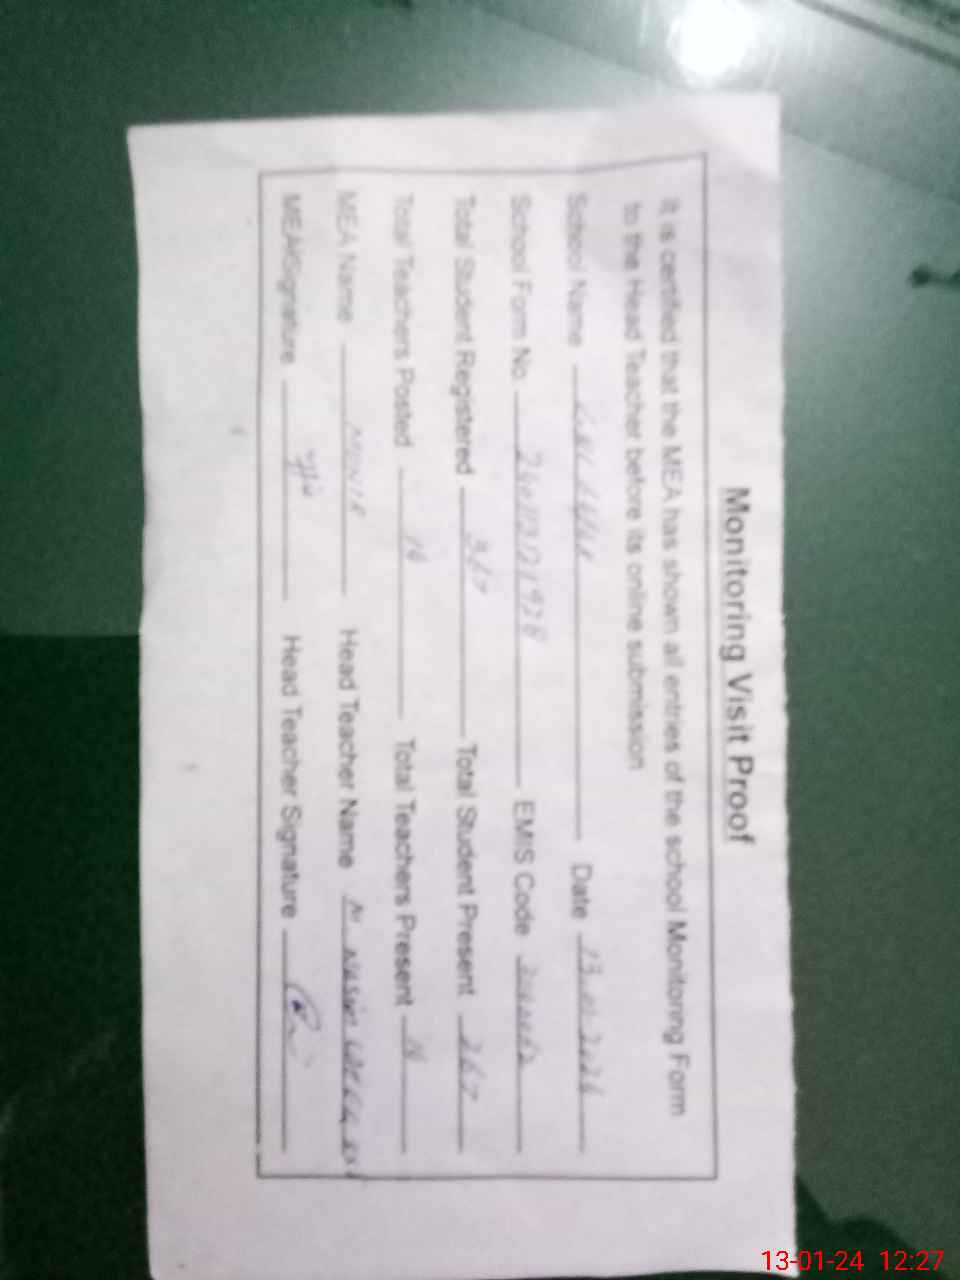 Monitoring Visit Proof
It is certified that the MEA has shown all entries of the school Monitoring Form
to the Head Teacher before its online submission
School Name Date 13-01-2024
School Form No. EMIS Code
Total Student Registered 367 Total Student Present 267
Total Teachers Posted 14 Total Teachers Present 14
MEA Name MUNIR Head Teacher Name M
MEA Signature Head Teacher Signature
13-01-24 12:27